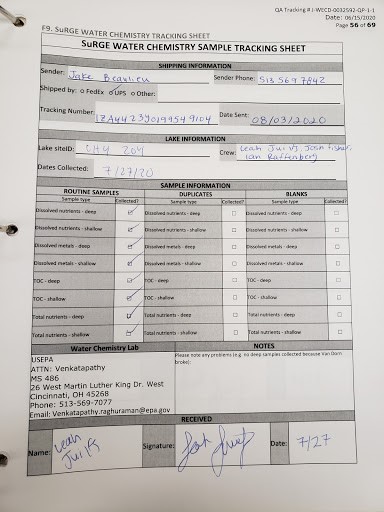 QA Tracking # J-WECD-0032592-QP-1-1
Date: 06/15/2020
Page 56 of 69
F9. SuRGE WATER CHEMISTRY TRACKING SHEET
SuRGE WATER CHEMISTRY SAMPLE TRACKING SHEET
SHIPPING INFORMATION
Sender: Jake Beaulieu Sender Phone: 513 569 7842
Shipped by: o FedEx o UPS o Other:
Tracking Number: Date Sent: 08/03/2020
LAKE INFORMATION
Lake siteID: CH4 204 Crew: Leah Juips, Josh Fisher,
Ian
Dates Collected: 7/27/20
SAMPLE INFORMATION
ROUTINE SAMPLES DUPLICATES BLANKS
Sample type Collected? Sample type Collected? Sample type Collected?
Dissolved nutrients - deep Dissolved nutrients - deep Dissolved nutrients - deep
Dissolved nutrients - shallow Dissolved nutrients - shallow Dissolved nutrients - shallow
Dissolved metals - deep Dissolved metals - deep Dissolved metals - deep
Dissolved metals - shallow Dissolved metals - shallow Dissolved metals - shallow
TOC - deep TOC - deep TOC - deep
TOC - shallow TOC - shallow TOC - shallow
Total nutrients - deep Total nutrients - deep Total nutrients - deep
Total nutrients - shallow Total nutrients - shallow Total nutrients - shallow
Water Chemistry Lab NOTES
USEPA
ATTN: Venkatapathy
MS 486
26 West Martin Luther King Dr. West
Cincinnati, OH 45268
Phone: 513-569-7077
Email: Venkatapathy.raghuraman@epa.gov
Please note any problems (e.g. no deep samples collected because Van Dorn
broke):
RECEIVED
Name: Leah
Juips
Signature: Date: 7/27